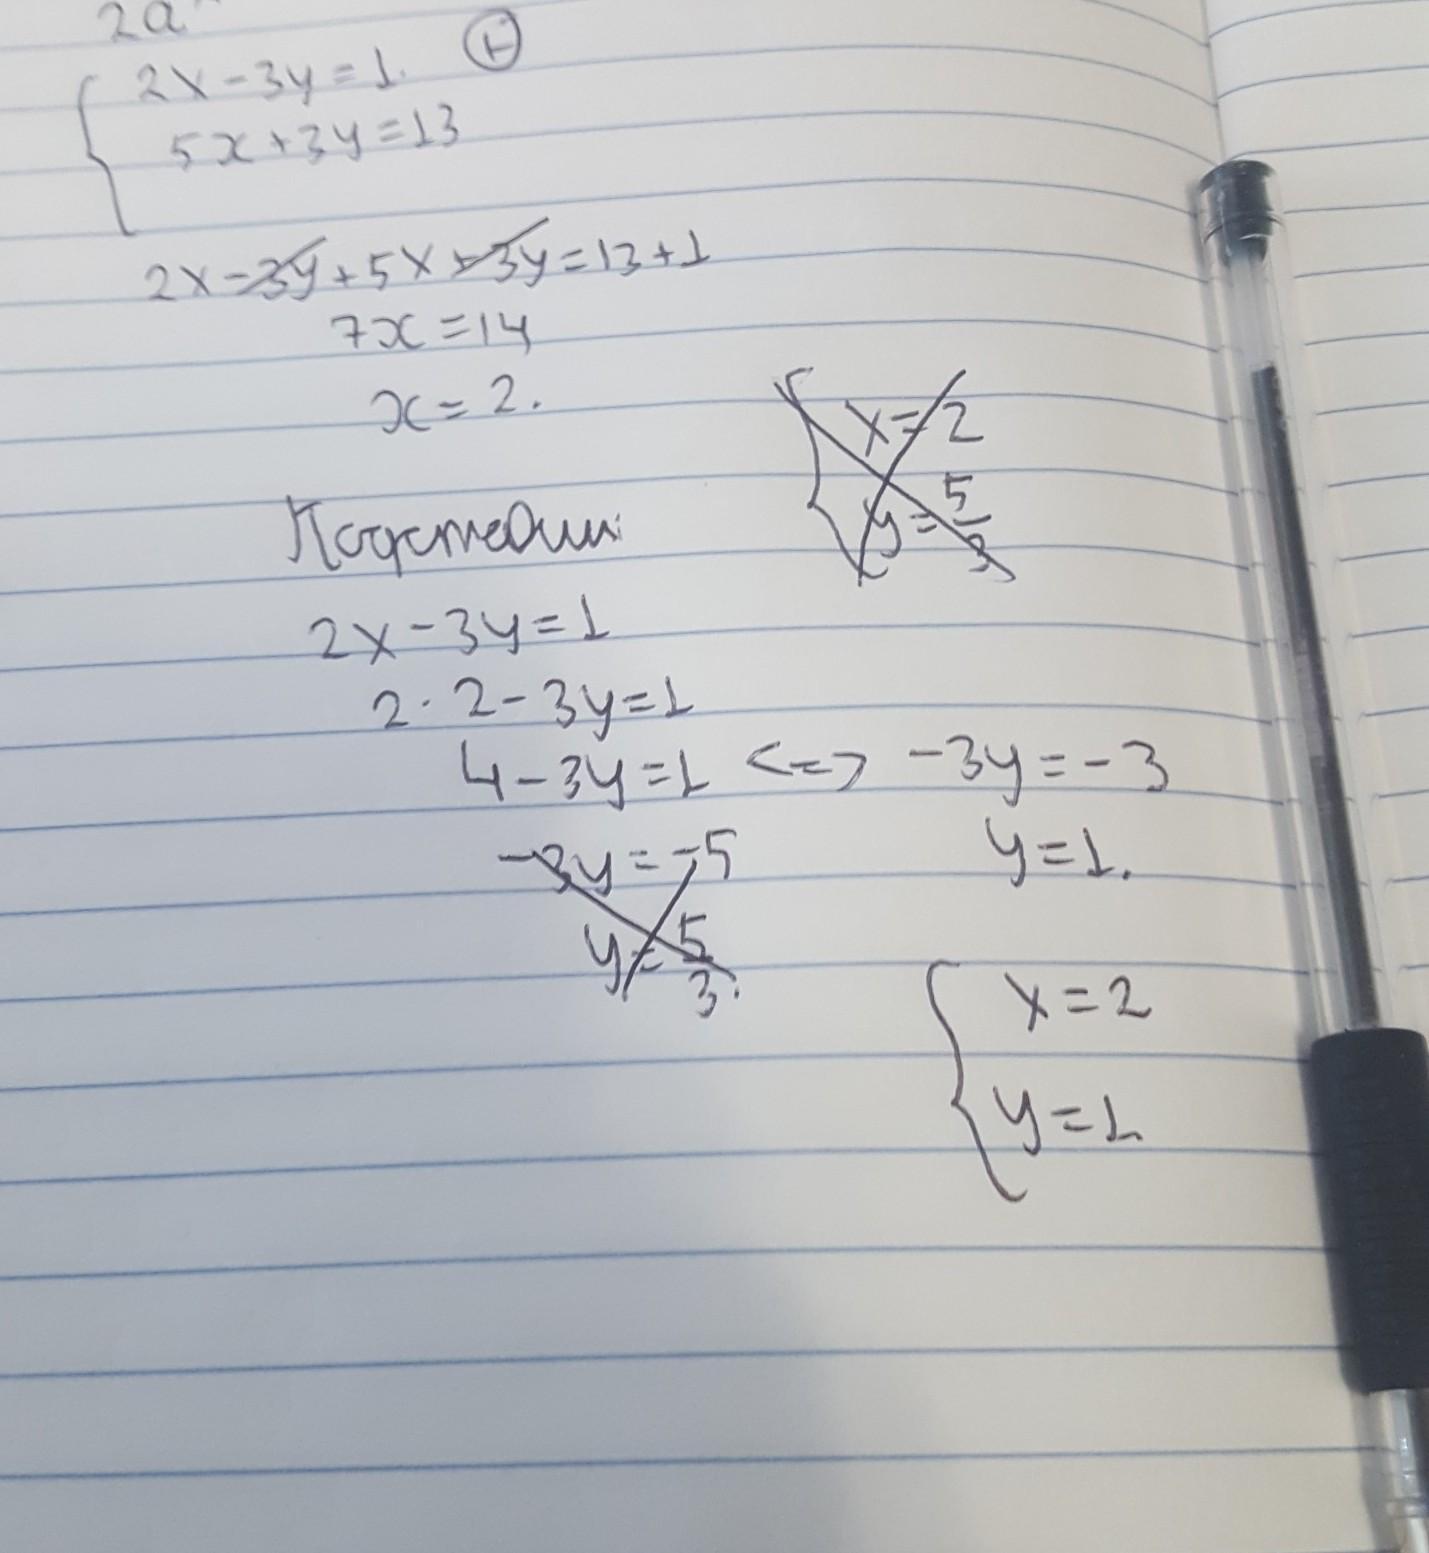 2a
2x-3y=1. +
5x+3y=13
2x-3y+5x+3y=13+1
7x=14
x=2.
x=2
y=5/3
Подставим:
2x-3y=1
2·2-3y=1
4-3y=1 <=> -3y=-3
-3y=-5
y=1.
y=5/3.
x=2
y=1